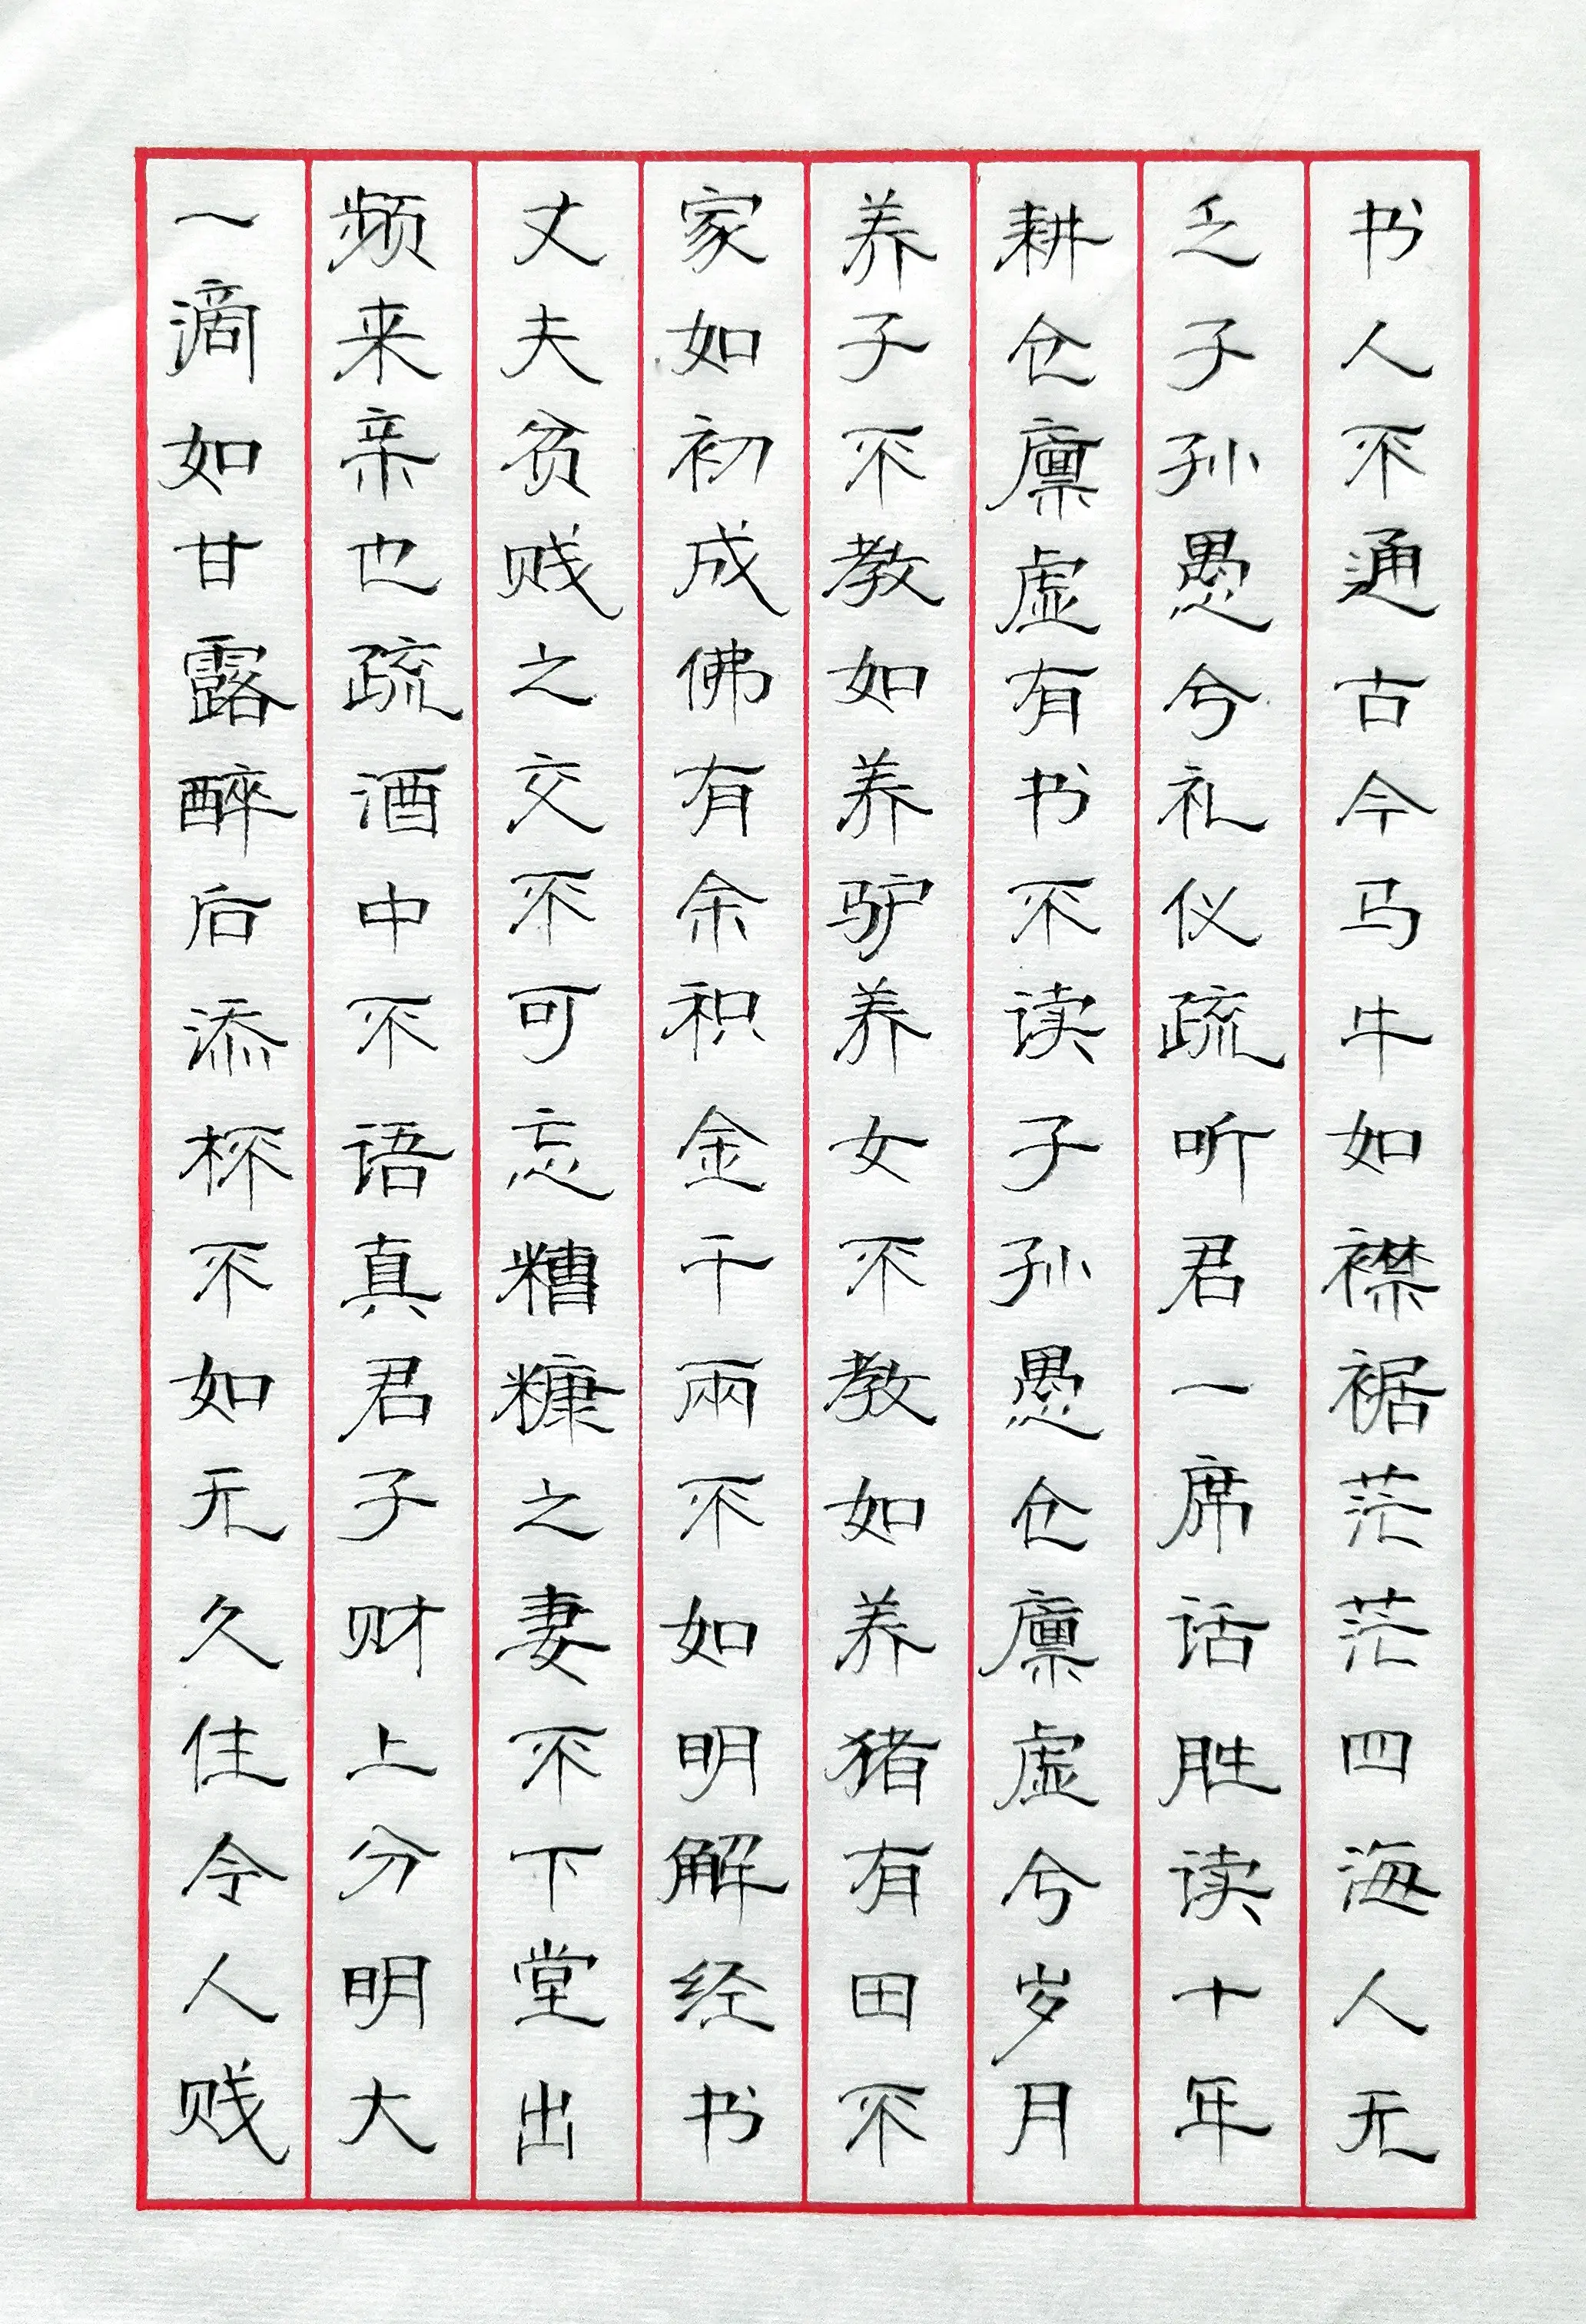 书人不通古今马牛如襟裾茫茫四海人无
乏子孙愚兮礼仪疏听君一席话胜读十年
耕仓廪虚有书不读子孙愚仓廪虚兮岁月
养子不教如养驴养女不教如养猪有田不
家如初成佛有余积金千兩不如明解经书
丈夫贫贱之交不可忘糟糠之妻不下堂出
频来亲也疏酒中不语真君子财上分明大
一滴如甘露醉后添杯不如无久住令人贱